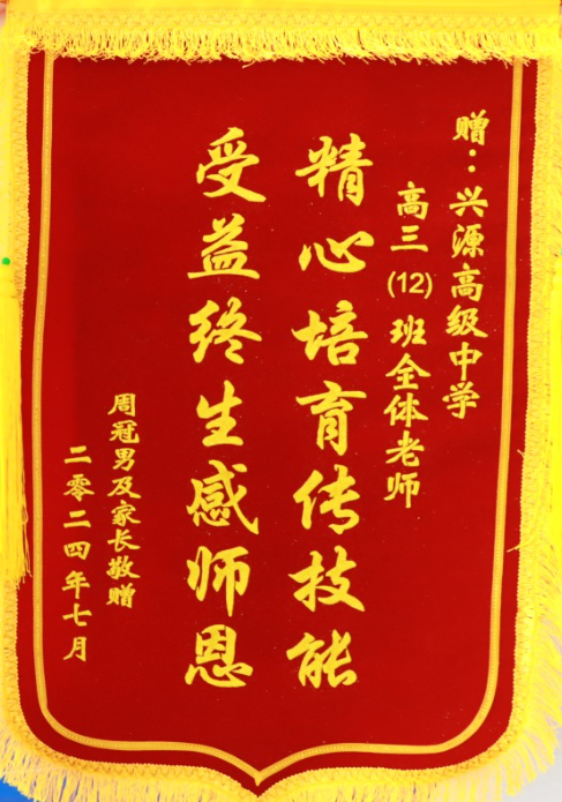 赠：兴源高级中学
高三(12)班全体老师
精心培育传技能
受益终生感师恩
周冠男及家长敬赠
二零二四年七月